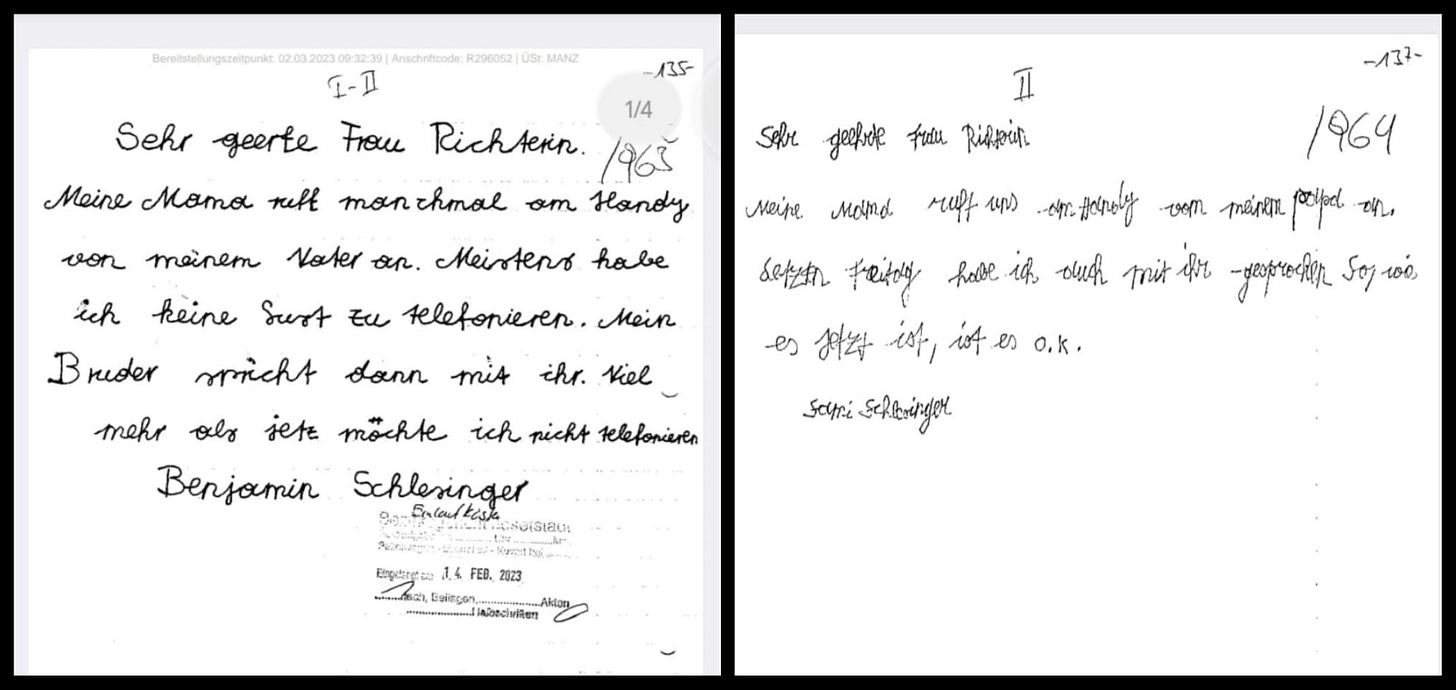 Bereitstellungszeitpunkt: 02.03.2023 09:32:39 | Anschriftcode: R296052 | ÜSt: MANZ
-135-
I-II
1/4
Sehr geerte Frau Richterin.
1963
Meine Mama ruft manchmal am Handy
von meinem Vater an. Meistens habe
ich keine Lust zu telefonieren. Mein
Bruder spricht dann mit ihr. Viel
mehr als jetz möchte ich nicht telefonieren
Benjamin Schlesinger
Eingelangt am 14. FEB. 2023
fach, Beilagen, Akten
Halbschriften
-137-
II
1964
Sehr geehrte Frau Richterin
Meine Mama ruft uns am Handy vom meinem papa an.
Letztn Freitag habe ich auch mit ihr gesprochen So, wie
es jetzt ist, ist es o.k.
Sami Schlesinger